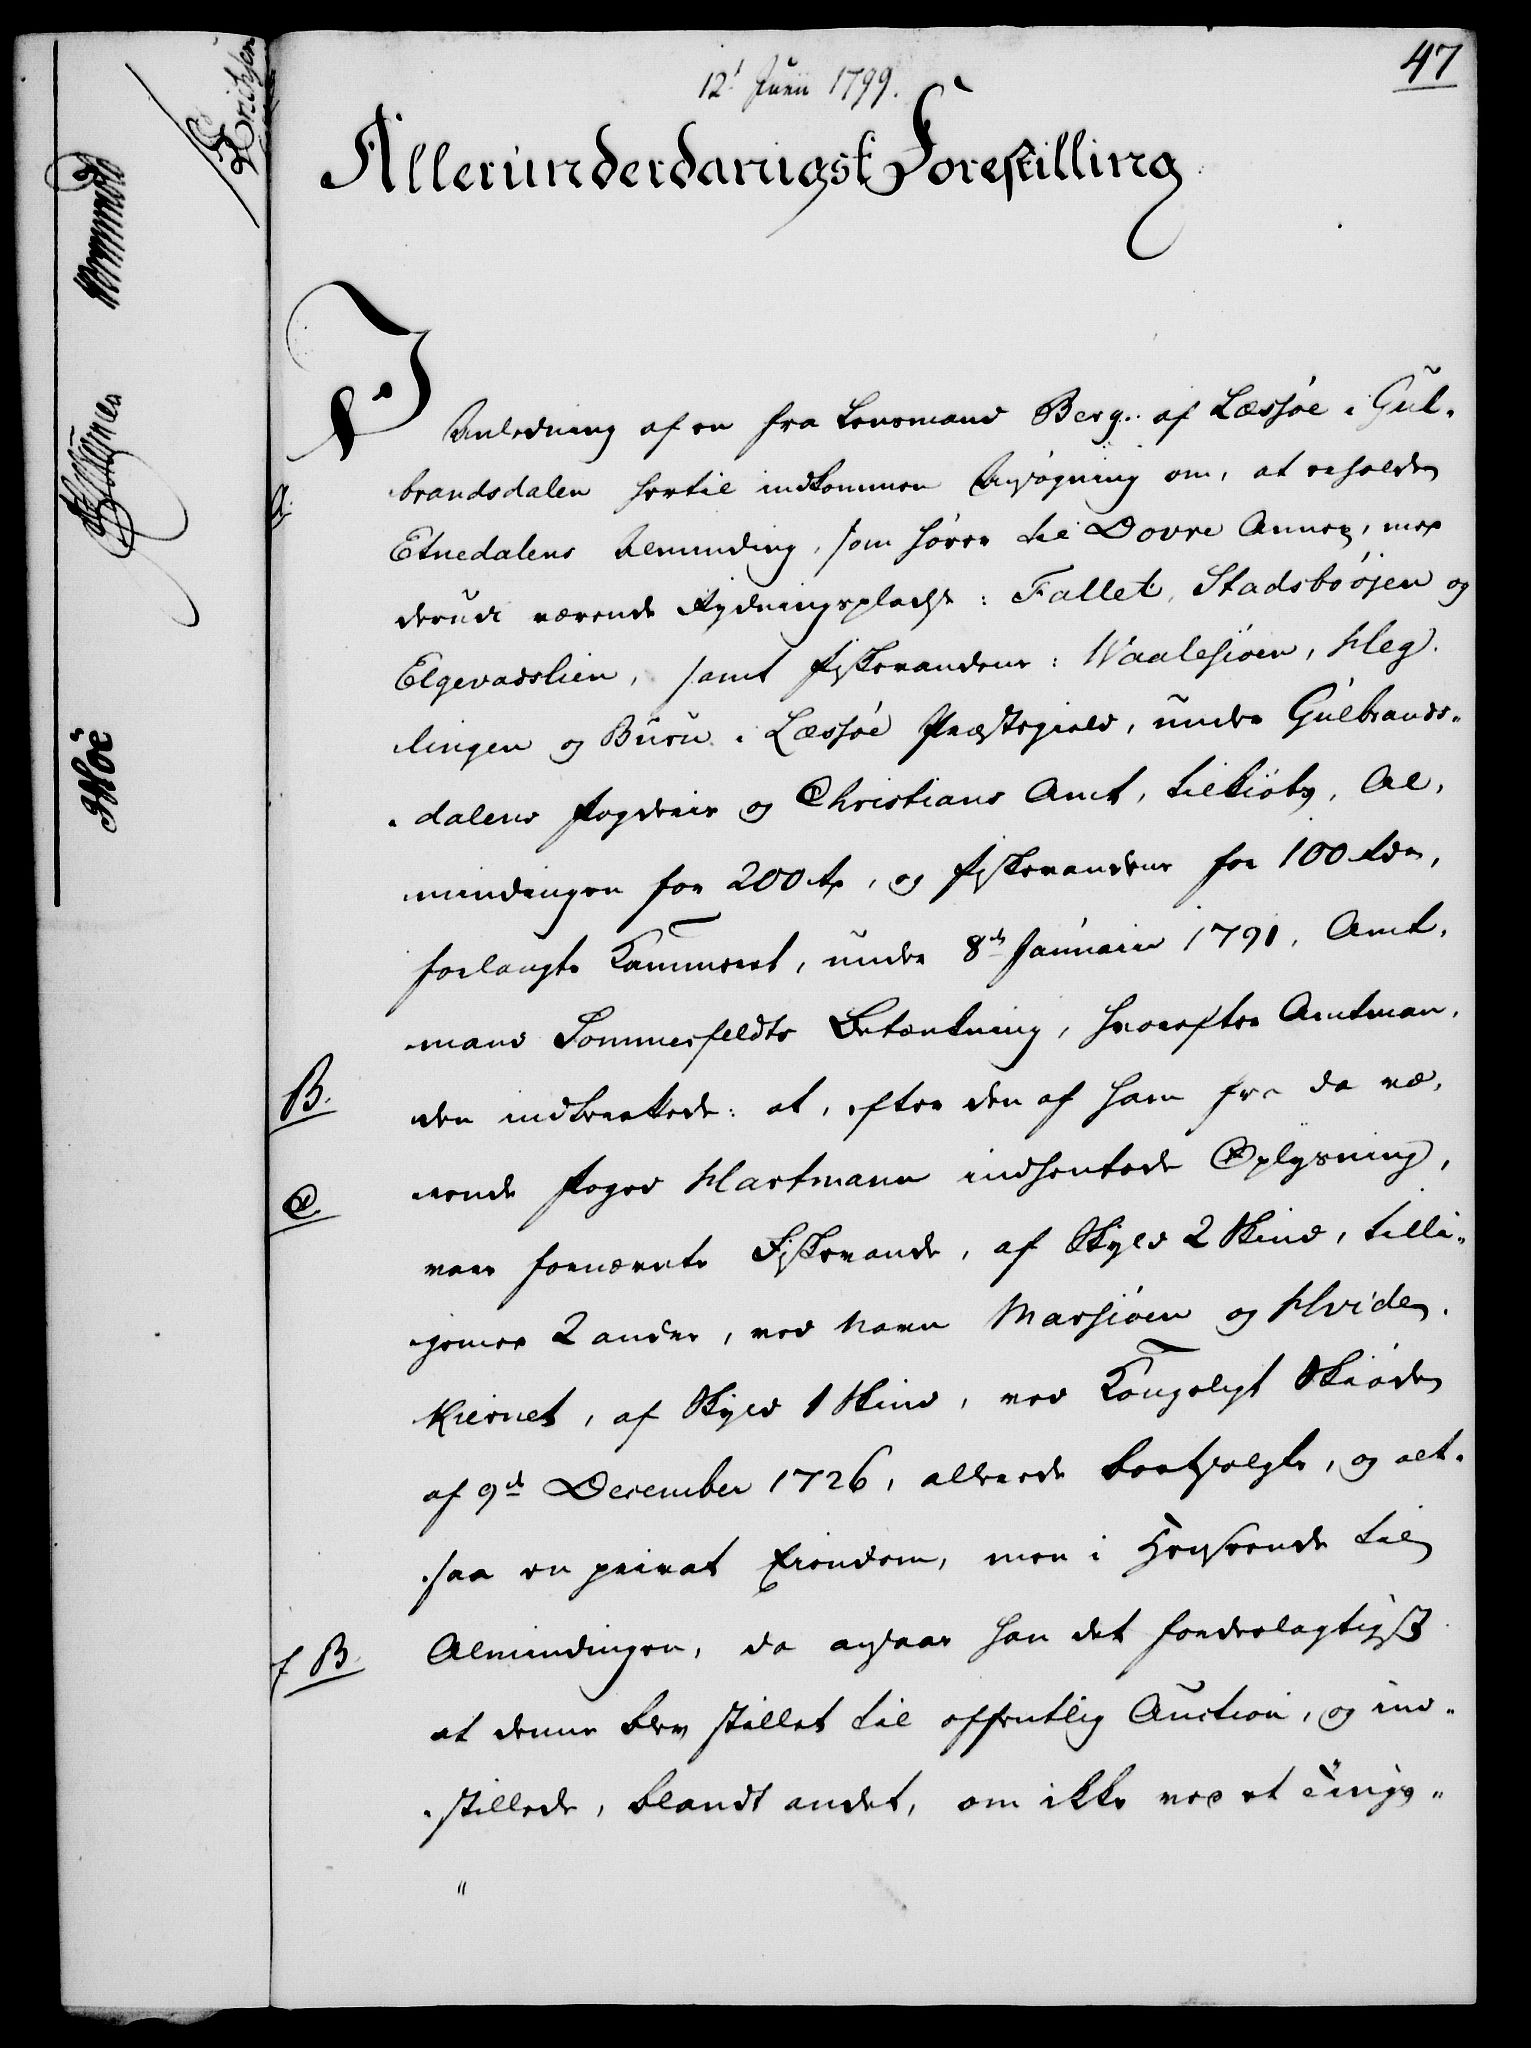 47
12t Junii 1799.
Allerunderdanigst Forestilling
I
Anledning af en fra Lensmand Berg af Læssøe i Gul-
A.
brandsdalen hertil indkommen Ansøgning om, at erholde
Etnedalens Alminding, som hører til Dovre Annex, med
derudi værende Rydningspladse: Fallet, Stadsbøöjen og
Elgevadslien, samt Fiskevandene: Waalesiøen, Heg-
lingen og Busu i Læssøe Præstegield, under Gulbrands-
dalens Fogderie og Christians Amt, tilkiøbs, Al-
mindingen for 200 rd, og Fiskevandene for 100 rdr,
forlangte Kammeret, under 8de Januarii 1791, Amt-
mand Sommerfeldts Betænkning, hvorefter Amtman-
B.
den indberettede: at, efter den af ham fra da væ-
C
rende Foged Hartmann indhentede Oplysning,
vare fornævnte Fiskevande, af Skyld 2 Skind, tilli-
gemed 2 andre, ved Navn Marsiøen og Hvide-
Kiernet, af Skyld 1 Skind, ved Kongeligt Skiøde
af 9de December 1726, allerede bortsolgte, og alt-
saa en privat Eiendom, men i Henseende til
f B.
Almindingen, da ansaae han det fordeelagtigst
at denne blev stillet til offentlig Auction, og ind-
stillede, blandt andet, om ikke ved et Tings-
"
Wormskiold
Møe